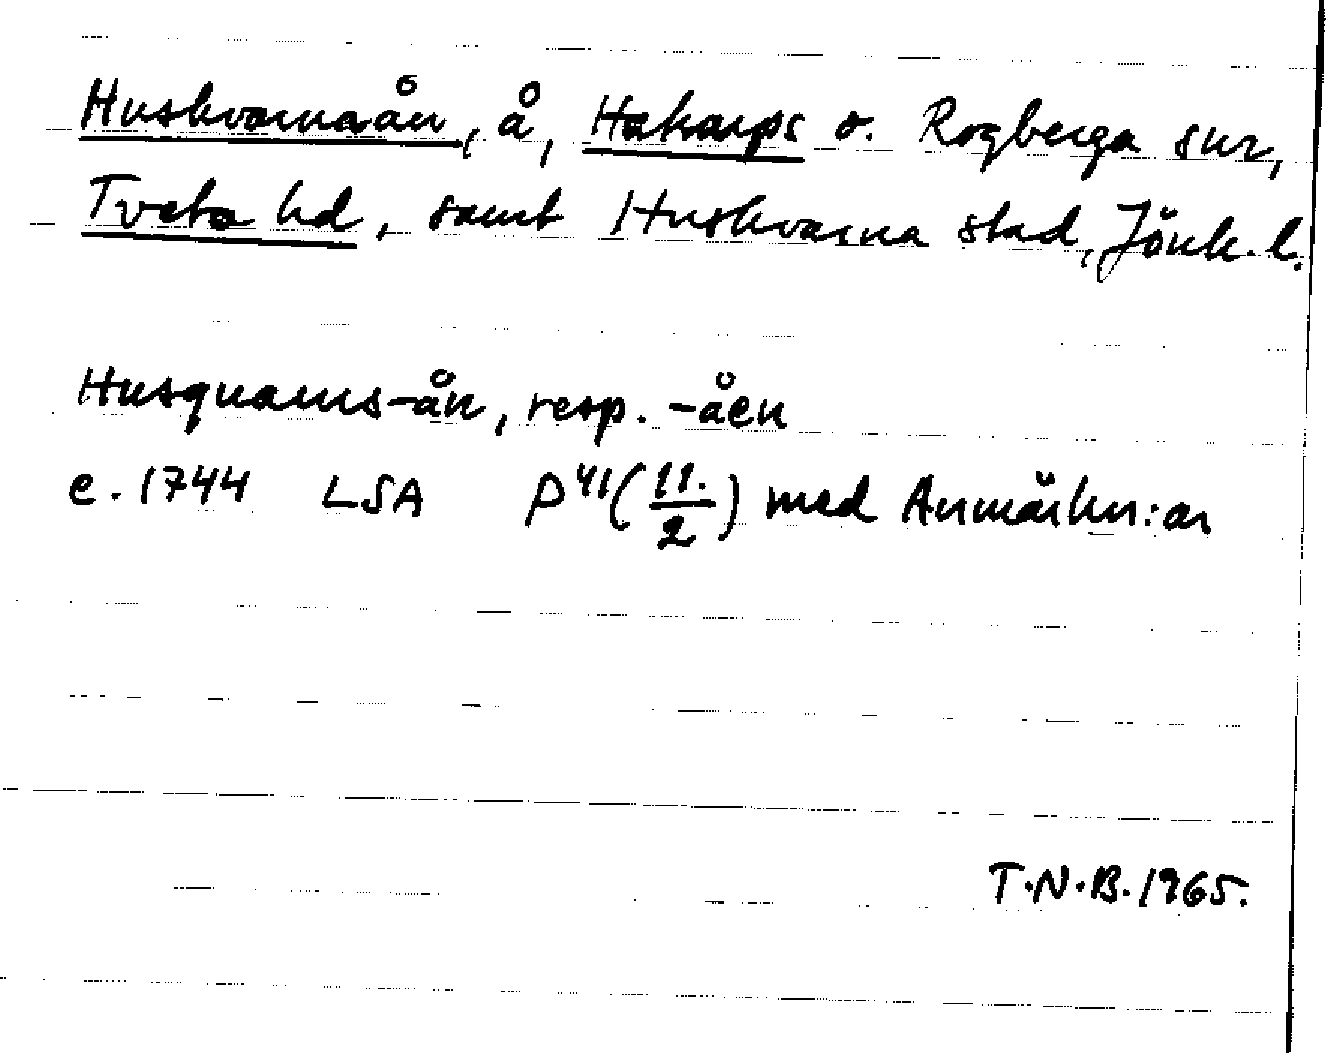 Huskvarnaån, å, Hakarps o. Rogberga snr,
Tveta hd, samt Huskvarna stad, Jönk. l.
Husquarns-ån, resp. -åen
c. 1744 LSA P⁴¹(11./2) med Anmärkn:ar
T.N.B. 1965.